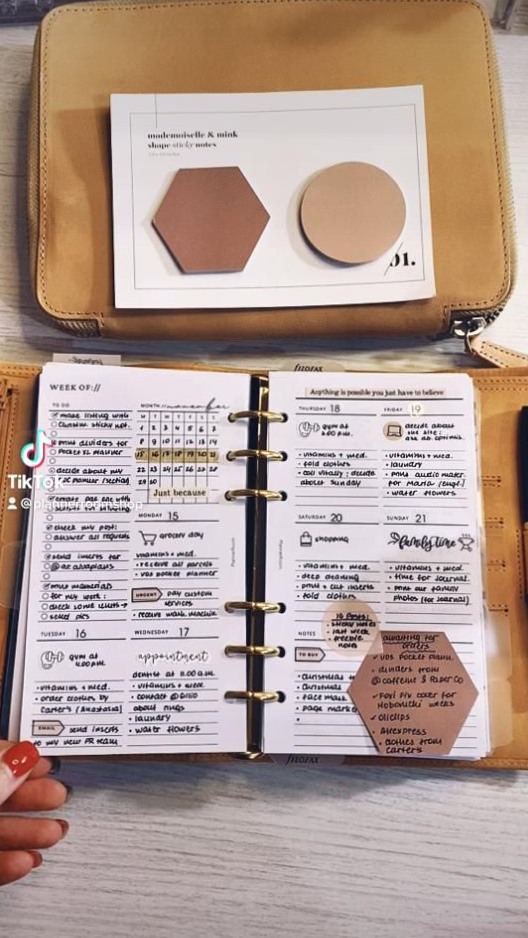 mademoiselle & mink
shape sticky notes
01.
FILOFAX
WEEK OF://
TO DO
make listing with
school sticky not.
print dividers for
Pocket VDS planner
decide about my
planner section
create PDF cut with
check my post:
answer all requests
send inserts for
print materials
for my work:
check some units
send pics
MONTH // november
M T W T F S S
1 2 3 4 5 6 7
8 9 10 11 12 13 14
15 16 17 18 19 20 21
22 23 24 25 26 27 28
29 30
Just because
MONDAY 15
grocery day
vitamins + med.
• receive all parcels
• VDS pocket planner
URGENT pay custom
services
• receive wash machin
TUESDAY 16
gym at
4.00 P.M.
• vitamins + med.
• order clothes by
Carter's (Anastasia)
EMAIL send inserts
to my new PR team
WEDNESDAY 17
appointment
dentist at 11.00 A.M.
• vitamins + med.
• contact @
about rugs
• laundry
• water flowers
Anything is possible you just have to believe
THURSDAY 18
gym at
6.00 P.M.
• vitamins + med.
• fold clothes
• call Vitaliy: decide
about Sunday
FRIDAY 19
decide about
the site:
• vitamins + med.
• laundry
• print audio mater.
for Maria (Engl.)
• water flowers
SATURDAY 20
shopping
• vitamins + med.
• deep cleaning
• print + cut inserts
• fold clothes
SUNDAY 21
family time
• vitamins + med.
• time for journal
• print our family
photos (for journal)
NOTES
IG Posts:
• sticky notes
• last week
• freebie
notes
TO BUY
• Christmas
• Christmas
• face mask
• page mark
awaiting for
orders
✓ VDS pocket plann.
✓ dividers from
@caffeine & Paper Co
✓ Foil PVC cover for
Hobonichi weeks
✓ oliclips
• Aliexpress
• clothes from
Carter's
FILOFAX
TikTok